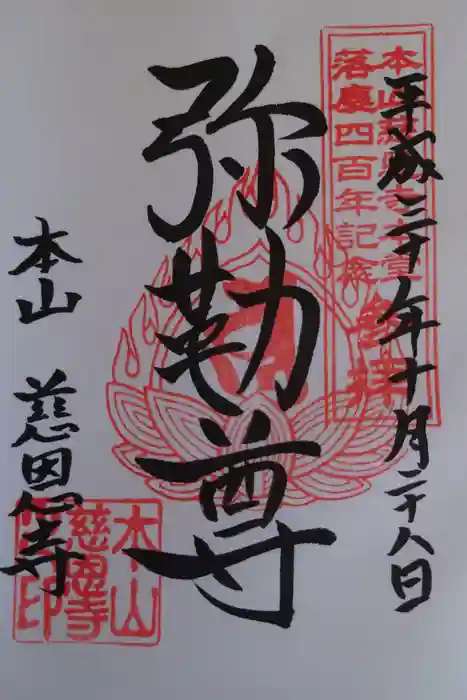 平成三十年十月二十八日
本山慈恩寺本堂
落慶四百年記念 参拝
弥勒尊
本山 慈恩寺
本山
慈恩寺
印